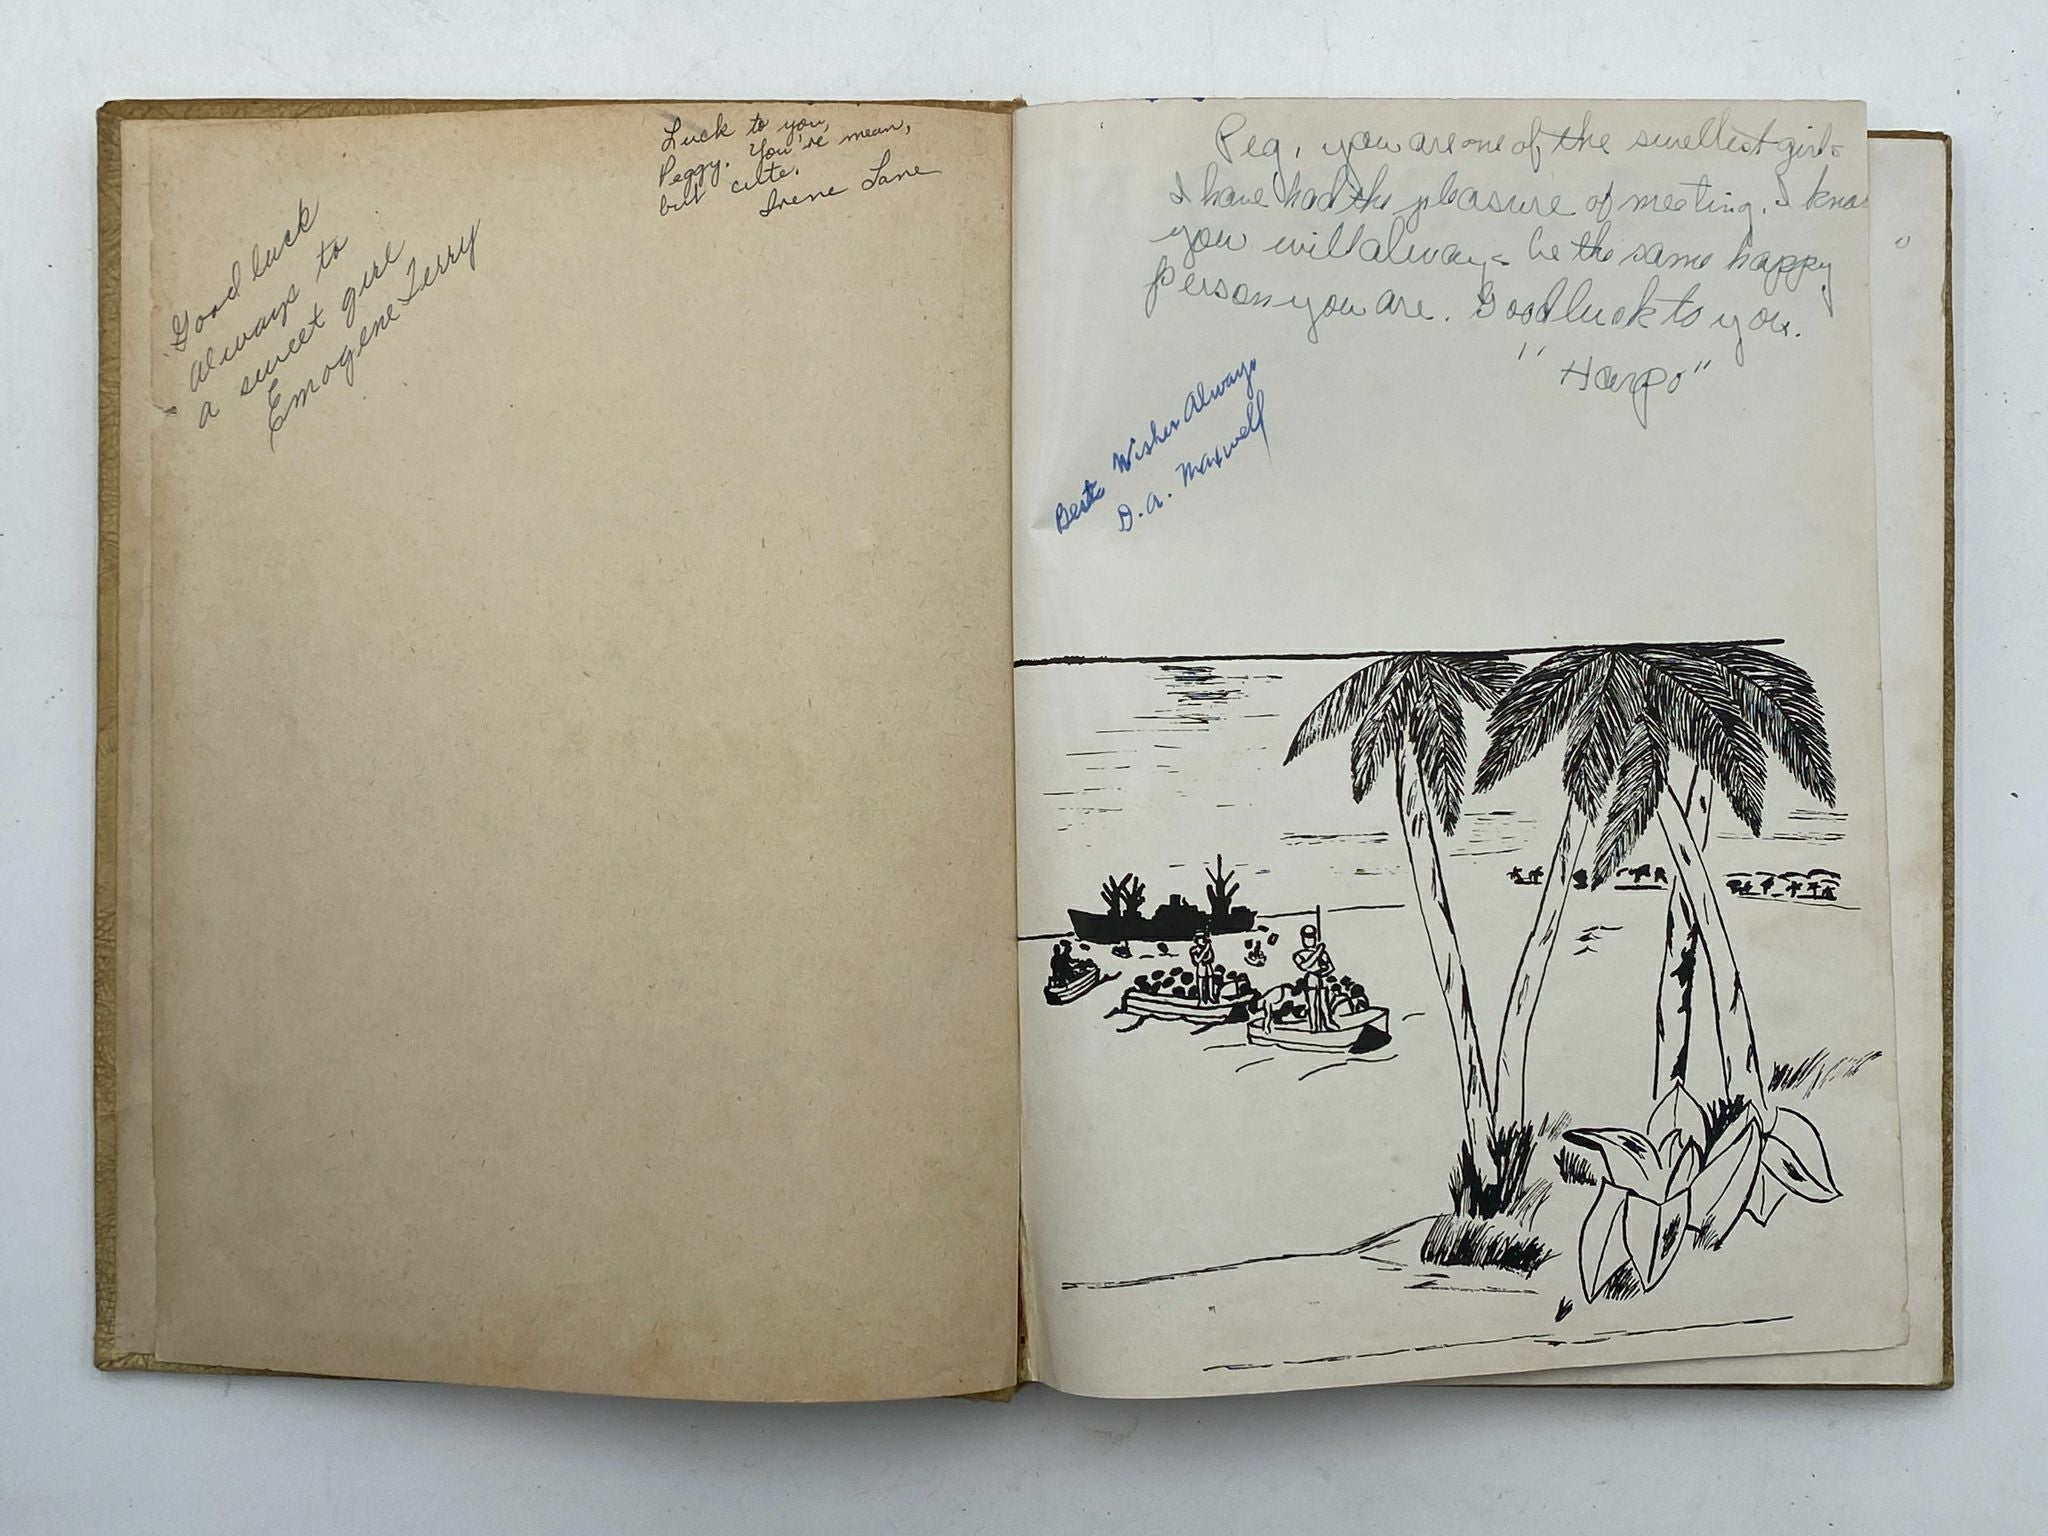 Luck to you,
Peggy. You're mean,
but cute.
Irene Lane
Good luck
always to
a sweet girl
Emogene Terry
Peg, you are one of the swellest girls
I have had the pleasure of meeting. I know
you will always be the same happy
person you are. Good luck to you.
"Harpo"
Best Wishes Always
D. A. Maxwell